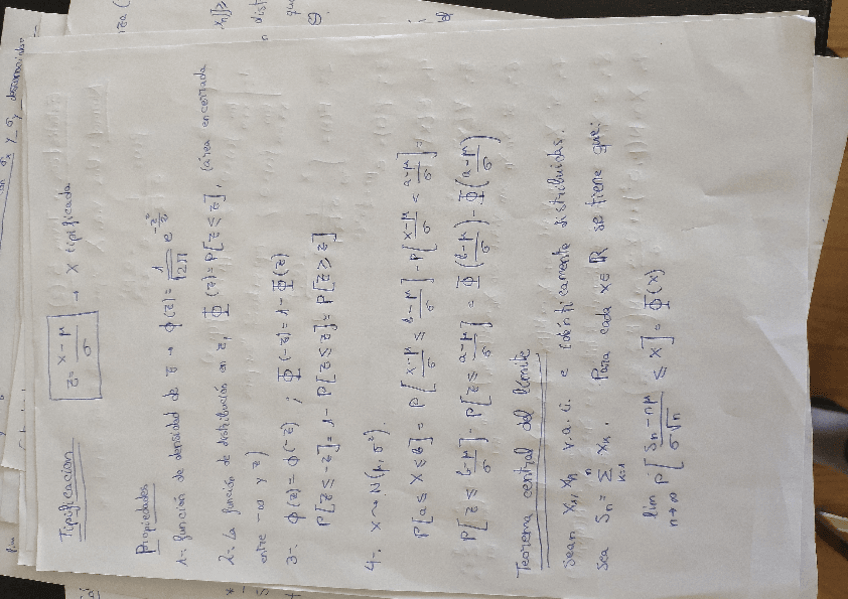 Tipificación
z = (x-μ)/σ → X tipificada
Propiedades
1-. función de densidad de z → ϕ(z) = 1/√2π e^(-z²/2)
2-. La función de distribución en z, Φ(z) = P[Z ≤ z], (área encerrada
entre -∞ y z)
3-. ϕ(z) = ϕ(-z) ; Φ(-z) = 1 - Φ(z)
P[Z ≤ -z] = 1 - P[Z ≤ z] = P[Z ≥ z]
4-. X ~ N(μ, σ²).
P[a ≤ X ≤ b] = P[(x-μ)/σ ≤ (b-μ)/σ] - P[(x-μ)/σ ≤ (a-μ)/σ] =
P[Z ≤ (b-μ)/σ] - P[Z ≤ (a-μ)/σ] = Φ((b-μ)/σ) - Φ((a-μ)/σ)
Teorema central del límite
Sean X₁, Xₙ v.a.i. e idénticamente distribuidas.
Sea Sₙ = Σ(k=1, n) Xₖ. Para cada x∈ℝ se tiene que:
lim n→∞ P[(Sₙ - nμ)/(σ√n) ≤ x] = Φ(x)